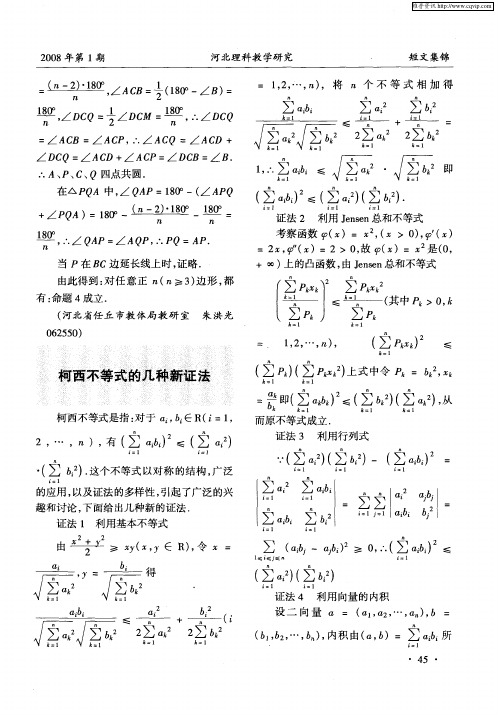 维普资讯 http://www.cqvip.com
2008 年第 1 期
河北理科教学研究
短文集锦
= (n-2)·180°/n, ∠ACB = 1/2(180° - ∠B) =
180°/n, ∠DCQ = 1/2∠DCM = 180°/n, ∴∠DCQ
= ∠ACB = ∠ACP, ∴∠ACQ = ∠ACD +
∠DCQ = ∠ACD + ∠ACP = ∠DCB = ∠B.
∴A、P、C、Q 四点共圆.
在△PQA 中, ∠QAP = 180° - (∠APQ
+ ∠PQA) = 180° - (n-2)·180°/n - 180°/n =
180°/n, ∴∠QAP = ∠AQP, ∴PQ = AP.
当 P 在 BC 边延长线上时,证略.
由此得到:对任意正 n(n≥3)边形,都
有:命题 4 成立.
(河北省任丘市教体局教研室 朱洪光
062550)
柯西不等式的几种新证法
柯西不等式是指:对于 a_i, b_i ∈ R(i = 1,
2, …, n), 有 (∑_{i=1}^{n} a_i b_i)² ≤ (∑_{i=1}^{n} a_i²)
·(∑_{i=1}^{n} b_i²).这个不等式以对称的结构,广泛
的应用,以及证法的多样性,引起了广泛的兴
趣和讨论,下面给出几种新的证法.
证法 1 利用基本不等式
由 (x² + y²)/2 ≥ xy(x, y ∈ R), 令 x =
a_i/√(∑_{k=1}^{n} a_k²), y = b_i/√(∑_{k=1}^{n} b_k²) 得
a_i b_i/(√(∑_{k=1}^{n} a_k²) √(∑_{k=1}^{n} b_k²)) ≤ a_i²/(2∑_{k=1}^{n} a_k²) + b_i²/(2∑_{k=1}^{n} b_k²) (i
= 1,2,…,n), 将 n 个不等式相加得
∑_{i=1}^{n} a_i b_i/(√(∑_{k=1}^{n} a_k²) √(∑_{k=1}^{n} b_k²)) ≤ ∑_{i=1}^{n} a_i²/(2∑_{k=1}^{n} a_k²) + ∑_{i=1}^{n} b_i²/(2∑_{k=1}^{n} b_k²) =
1, ∴∑_{i=1}^{n} a_i b_i ≤ √(∑_{k=1}^{n} a_k²) · √(∑_{k=1}^{n} b_k²) 即
(∑_{i=1}^{n} a_i b_i)² ≤ (∑_{i=1}^{n} a_i²)(∑_{i=1}^{n} b_i²).
证法 2 利用 Jensen 总和不等式
考察函数 φ(x) = x², (x > 0), φ′(x)
= 2x, φ″(x) = 2 > 0, 故 φ(x) = x² 是(0,
+ ∞)上的凸函数,由 Jensen 总和不等式
(∑_{k=1}^{n} P_k x_k/∑_{k=1}^{n} P_k)² ≤ ∑_{k=1}^{n} P_k x_k²/∑_{k=1}^{n} P_k (其中 P_k > 0, k
= 1,2,…,n), (∑_{k=1}^{n} P_k x_k)² ≤
(∑_{k=1}^{n} P_k)(∑_{k=1}^{n} P_k x_k²)上式中令 P_k = b_k², x_k
= a_k/b_k 即(∑_{k=1}^{n} a_k b_k)² ≤ (∑_{k=1}^{n} b_k²)(∑_{k=1}^{n} a_k²), 从
而原不等式成立.
证法 3 利用行列式
∵(∑_{i=1}^{n} a_i²)(∑_{i=1}^{n} b_i²) - (∑_{i=1}^{n} a_i b_i)² =
|∑_{i=1}^{n} a_i² ∑_{i=1}^{n} a_i b_i; ∑_{i=1}^{n} a_i b_i ∑_{i=1}^{n} b_i²| = ∑_{i=1}^{n} ∑_{j=1}^{n} |a_i² a_j b_j; a_i b_i b_j²| =
∑_{1≤i≤j≤n} (a_i b_j - a_j b_i)² ≥ 0, ∴(∑_{i=1}^{n} a_i b_i)² ≤
(∑_{i=1}^{n} a_i²)(∑_{i=1}^{n} b_i²)
证法 4 利用向量的内积
设二向量 a = (a₁, a₂, …, a_n), b =
(b₁, b₂, …, b_n), 内积由(a, b) = ∑_{i=1}^{n} a_i b_i 所
· 45 ·